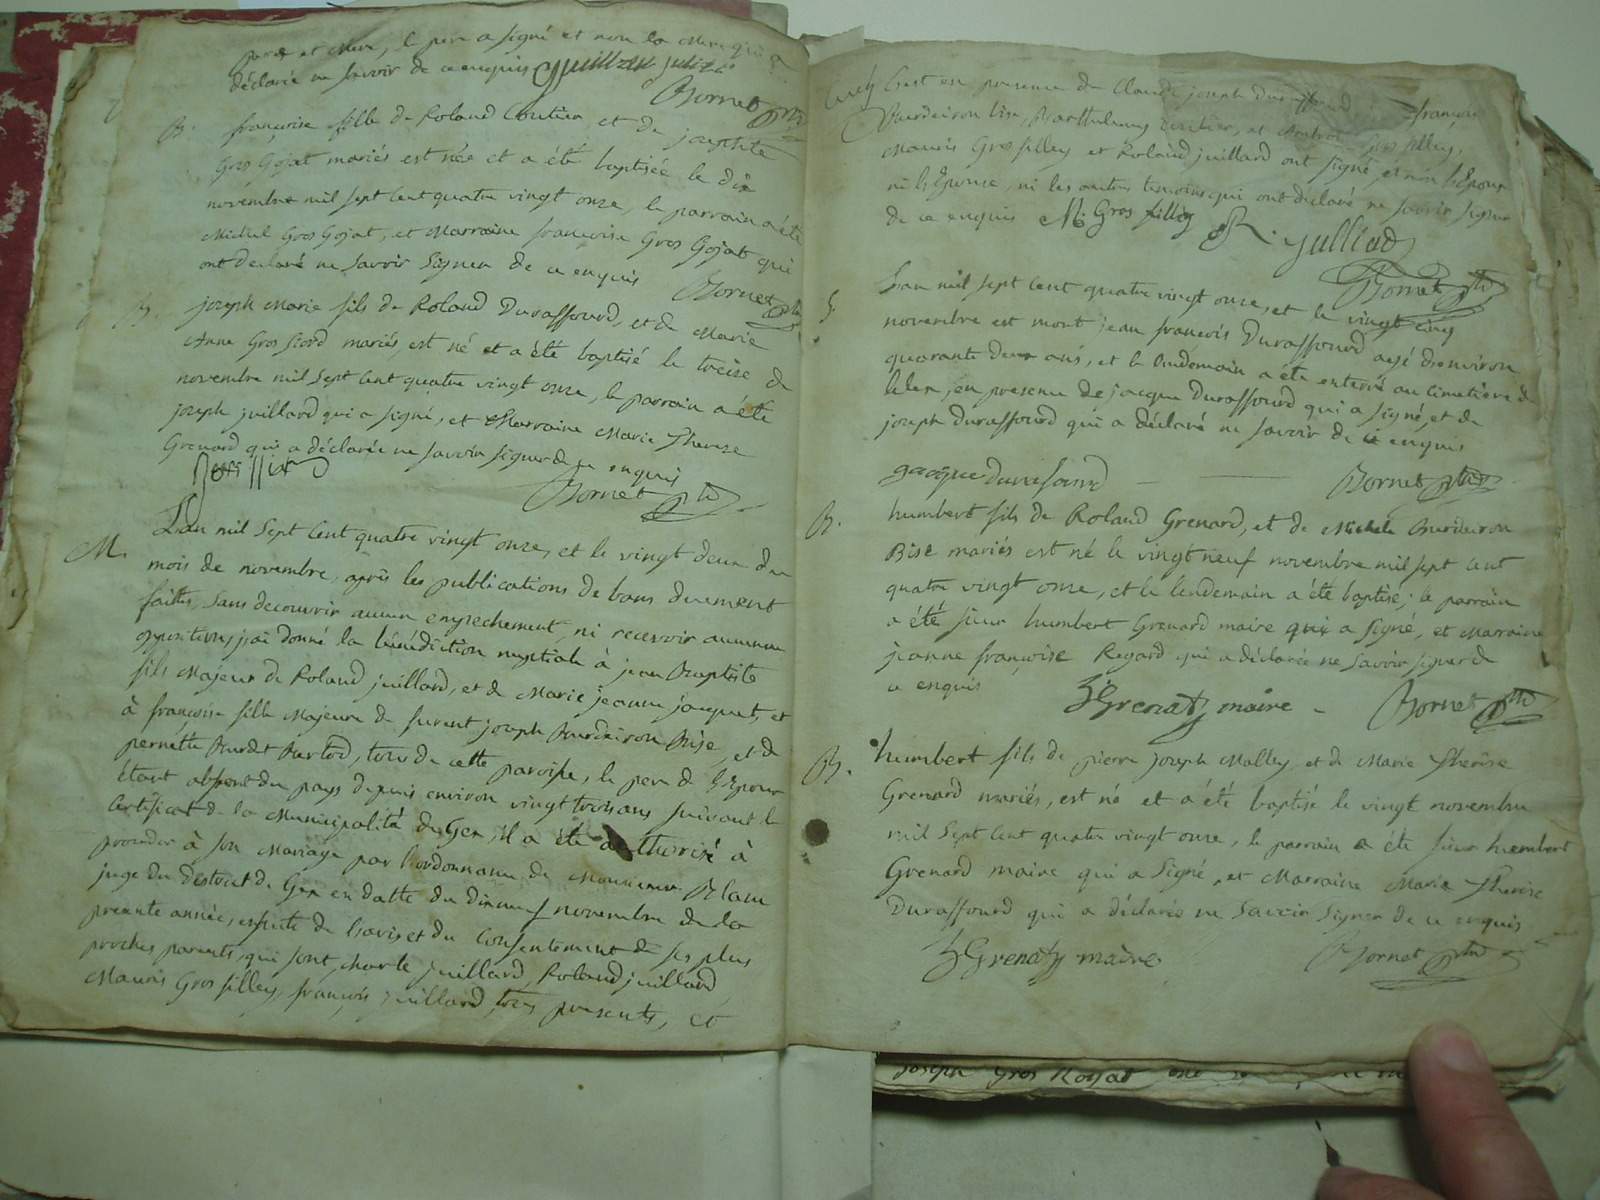 pere et Mere, le pere a signé et non la Mere qui a
déclaré ne savoir de ce enquis
Bornet
B. françoise fille de Roland Coutier et de josephte
Gros Gojat mariés est née et a été baptisée le dix
novembre mil sept cent quatre vingt onze, le parrain a été
Michel Gros Gojat, et Marraine françoise Gros Gojat qui
ont déclaré ne savoir signer de ce enquis Bornet
B. joseph Marie fils de Roland Duraffourd, et de Marie
Anne Gros mariés, est né et a été baptisé le treize de
novembre mil sept cent quatre vingt onze, le parrain a été
joseph juillard qui a signé, et Marraine Marie Therese
Grenard qui a déclarée ne savoir signer de ce enquis
Bornet
M. L'an mil sept cent quatre vingt onze, et le vingt deux du
mois de novembre, après les publications de bans duement
faittes, sans decouvrir aucun empechement, ni recevoir aucune
opposition, j'ai donné la bénédiction nuptiale à jean Baptiste
fils Majeur de Roland juillard, et de Marie jeanne jacquet, et
à françoise fille Majeure de furent joseph Burdeiron Bise, et de
pernette, tous de cette paroisse, le pere de l'Epoux
étant absent du pays depuis environ vingt trois ans suivant le
Certificat de la Municipalité de Gex, il a été authorisé à
proceder à son Mariage par l'ordonnance de Monsieur
juge du district de Gex en datte du dix neuf novembre de la
presente année, ensuite de l'avis et du Consentement de ses plus
proches parents, qui sont, charle juillard, Roland juillard,
Mauris Gros filley, françois juillard, tous presents, et
C'est en presence de Claude joseph Duraffourd françois
Burdeiron bise, Barthelemy Coutier, et Gros filley,
Mauris Gros filley et Roland juillard ont signé, et non l'Epoux
ni l'Epouse, ni les autres temoins qui ont déclaré ne savoir signer
de ce enquis M. Gros filley R. julliard
Bornet
S. L'an mil sept cent quatre vingt onze, et le vingt cinq
novembre est mort jean françois Duraffourd agé d'environ
quarante deux ans, et le lendemain a été enterré au Cimetière de
Lelex, en presence de jacque Duraffourd qui a signé, et de
joseph Duraffourd qui a déclaré ne savoir de ce enquis
jacque durafourd Bornet
B. humbert fils de Roland Grenard, et de Michele Burdeiron
Bise mariés est né le vingt neuf novembre mil sept cent
quatre vingt onze, et le lendemain a été baptisé; le parrain
a été sieur humbert Grenard maire qui a signé, et Marraine
jeanne françoise Regard qui a déclarée ne savoir signer de
ce enquis
h Grenard maire - Bornet
B. humbert fils de pierre joseph Malley et de Marie Therèse
Grenard mariés, est né et a été baptisé le vingt novembre
mil sept cent quatre vingt onze, le parrain a été sieur humbert
Grenard maire qui a signé, et Marraine Marie Therèse
Duraffourd qui a déclarée ne savoir signer de ce enquis
h Grenard maire Bornet
joseph Gros